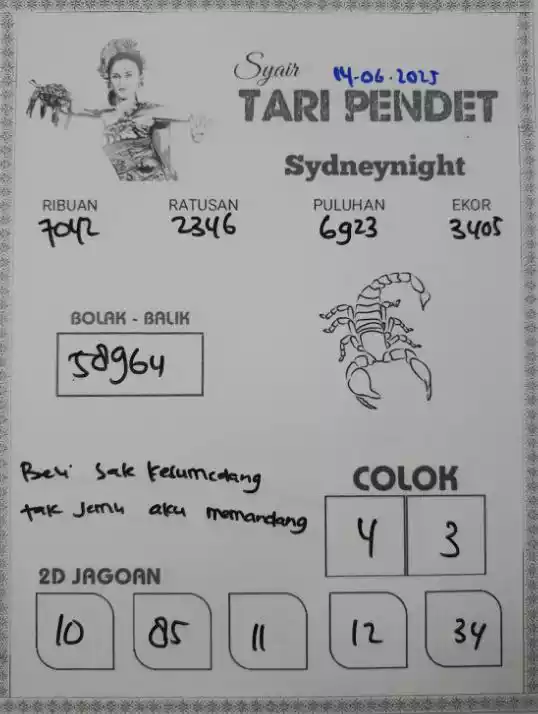 Syair 14-06-2025
TARI PENDET
Sydneynight
RIBUAN RATUSAN PULUHAN EKOR
7042 2346 6923 3405
BOLAK - BALIK
58964
Beli Sak kesumedang
tak Jemu aku memandang
COLOK
4 3
2D JAGOAN
10 85 11 12 34